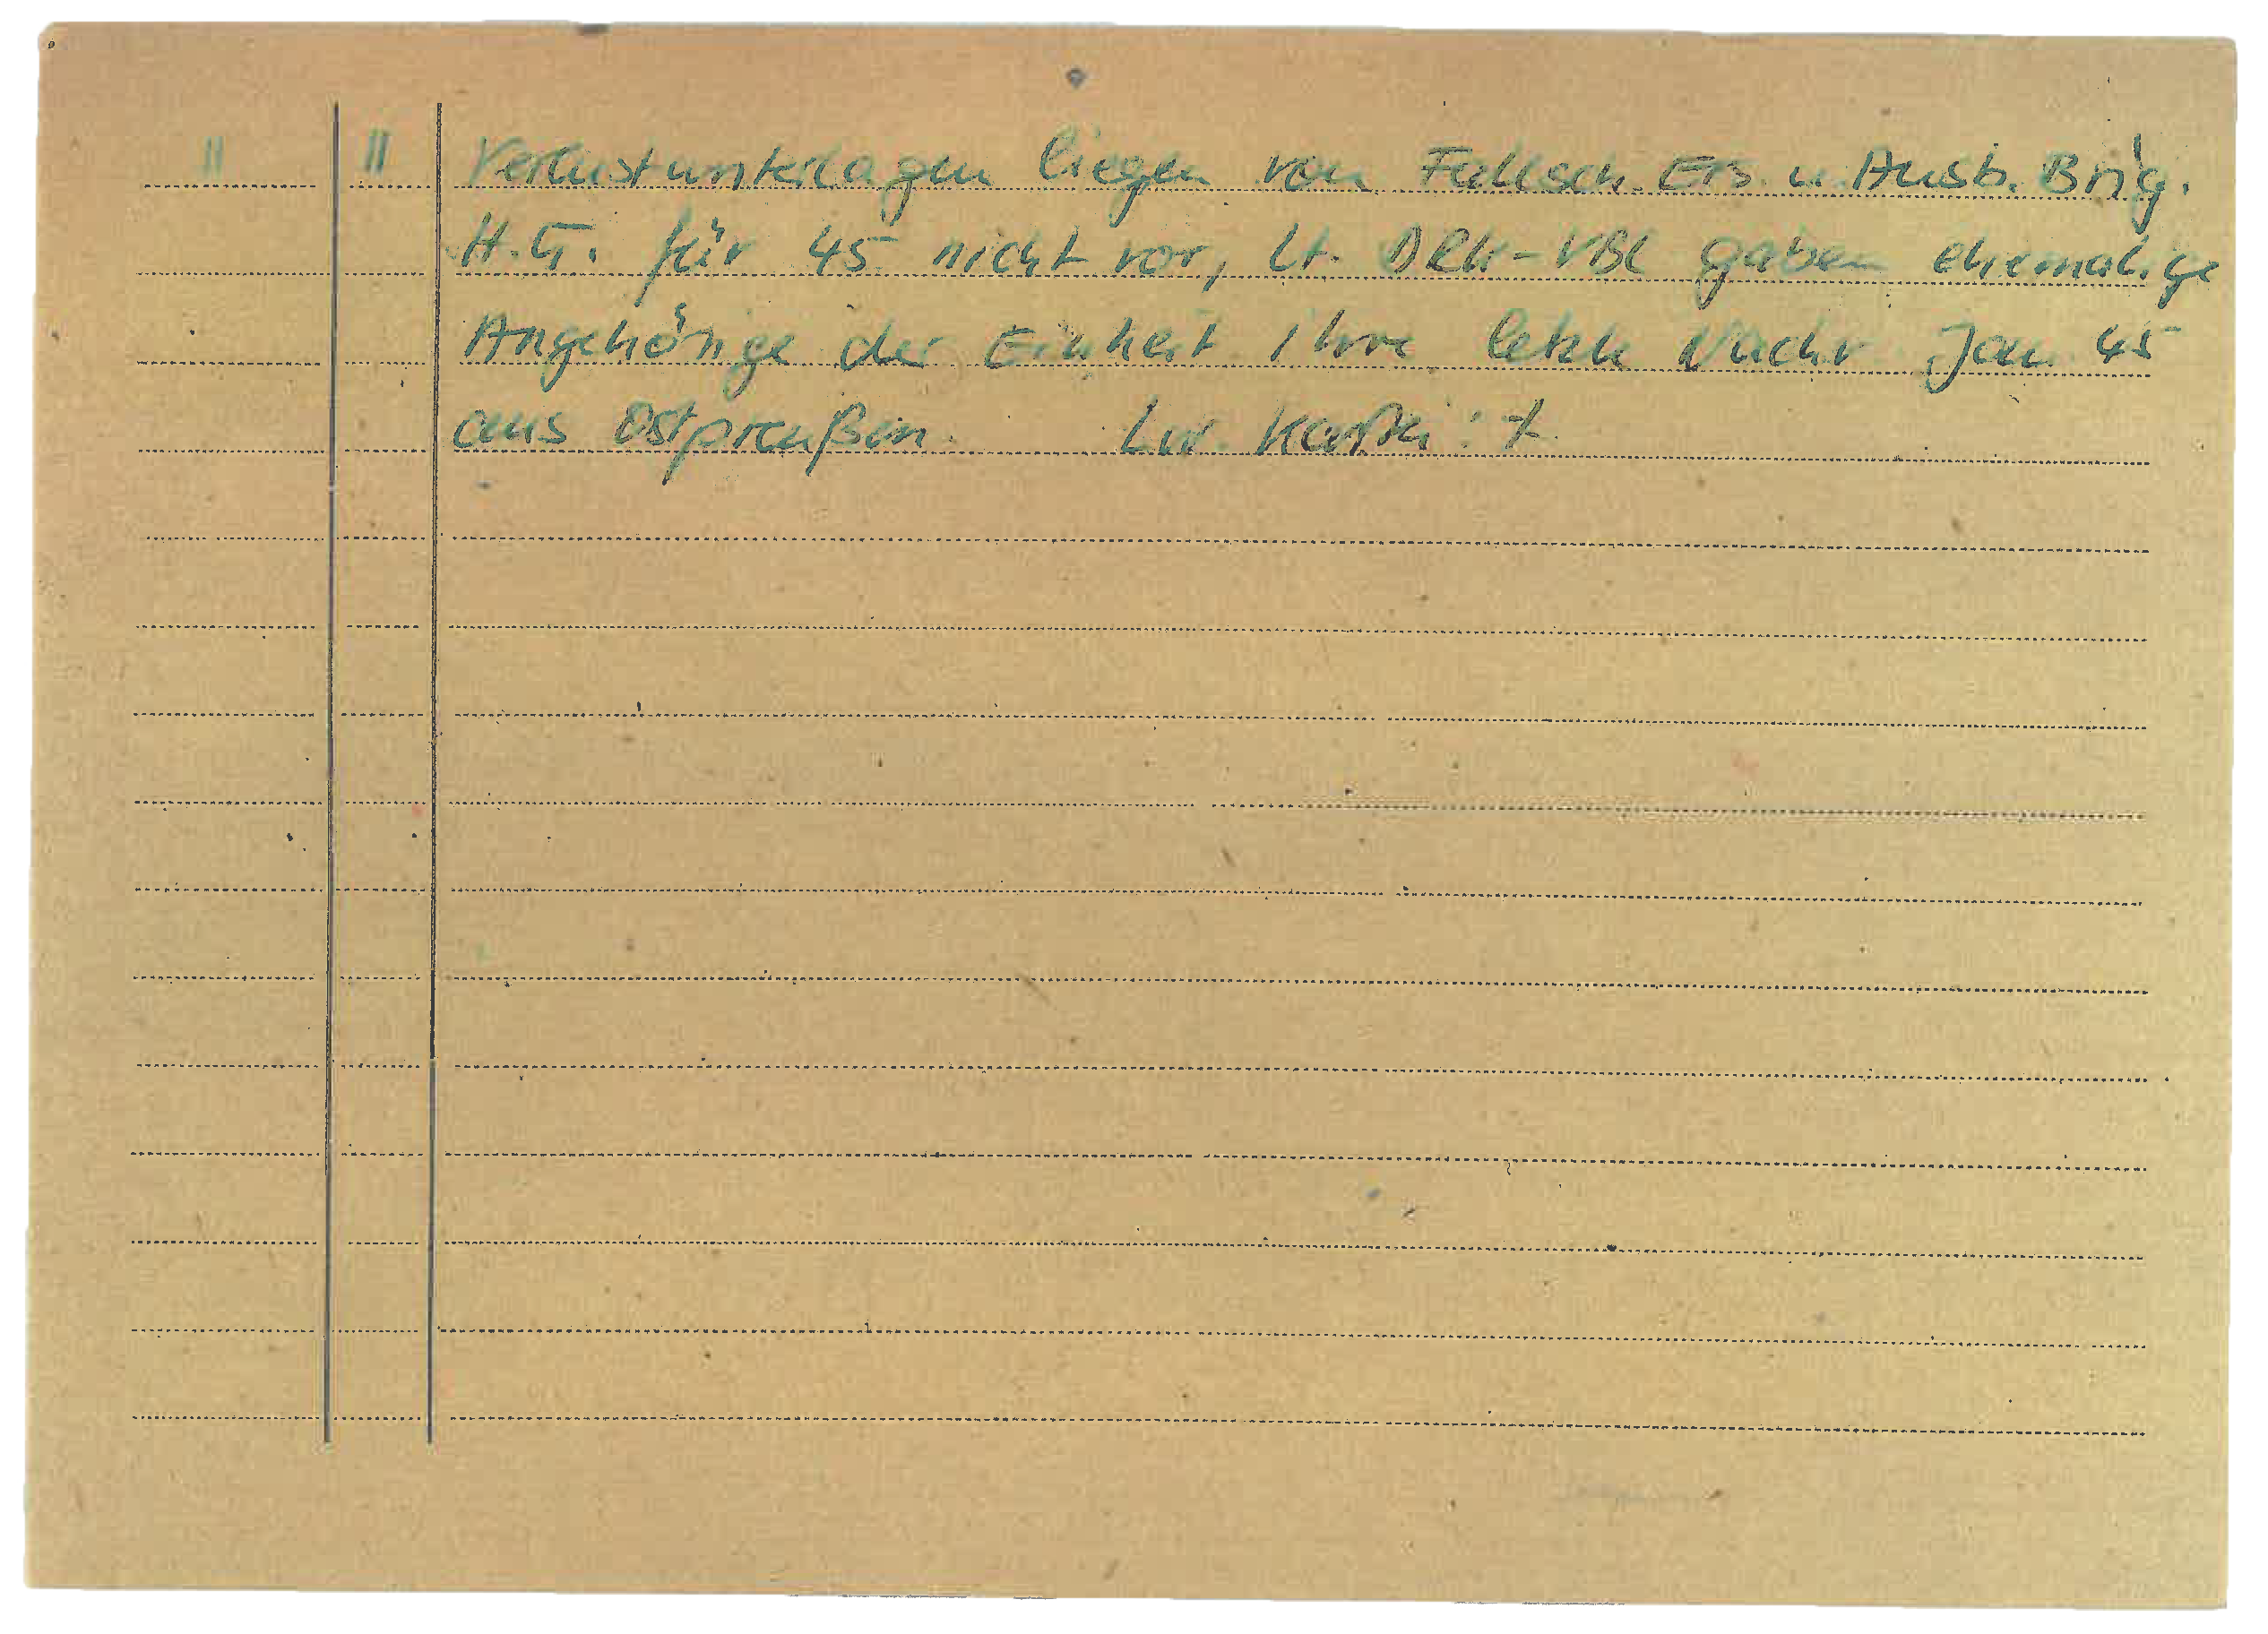 " " Verlustunterlagen liegen von Fallsch. Ers. u. Ausb. Brig.
H.G. für 45 nicht vor, lt. DRK-VBL gaben ehemalige
Angehörige der Einheit ihre letzte Nachr. Jan. 45
aus Ostpreußen. Lw. Kartei: